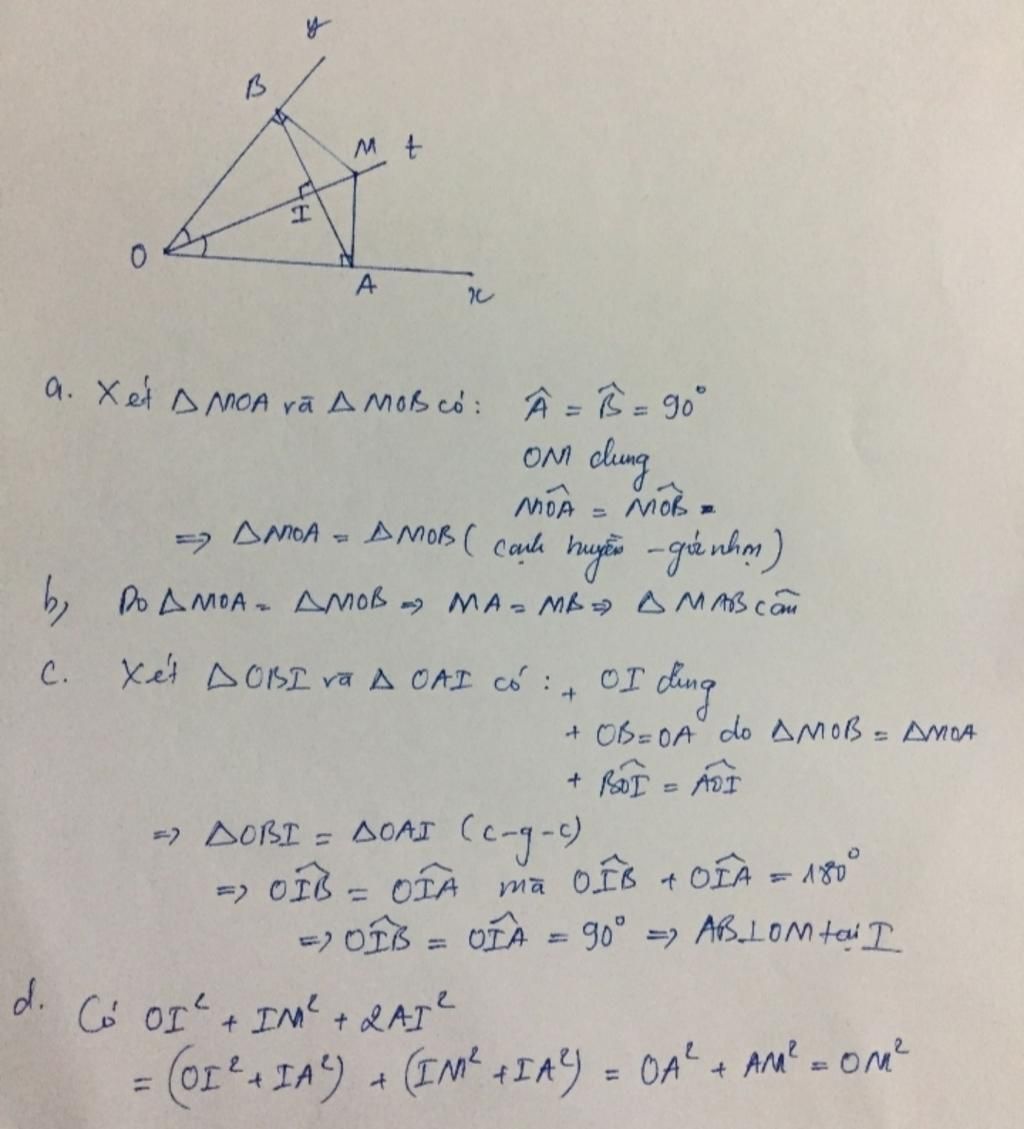 y
B
M t
I
O
A
x
a. Xét △MOA và △MOB có: Â = B̂ = 90°
OM chung
MÔA = MÔB
=> △MOA = △MOB ( cạnh huyền - góc nhọn )
b, Do △MOA = △MOB => MA = MB => △MAB cân
c. Xét △OBI và △OAI có : + OI chung
+ OB=OA do △MOB = △MOA
+ BÔI = AÔI
=> △OBI = △OAI (c-g-c)
=> OÎB = OÎA mà OÎB + OÎA = 180°
=> OÎB = OÎA = 90° => AB⊥OM tại I
d. Có OI² + IM² + 2AI²
= (OI² + IA²) + (IM² + IA²) = OA² + AM² = OM²